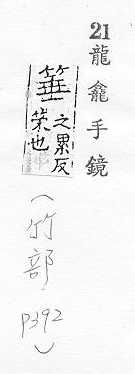 21 龍龕手鏡
箠 之累反
策也
(竹部 P392)